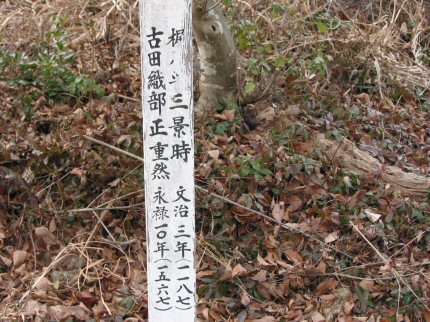 梶原平三景時 文治三年(一一八七)
古田織部正重然 永禄一〇年(一五六七)